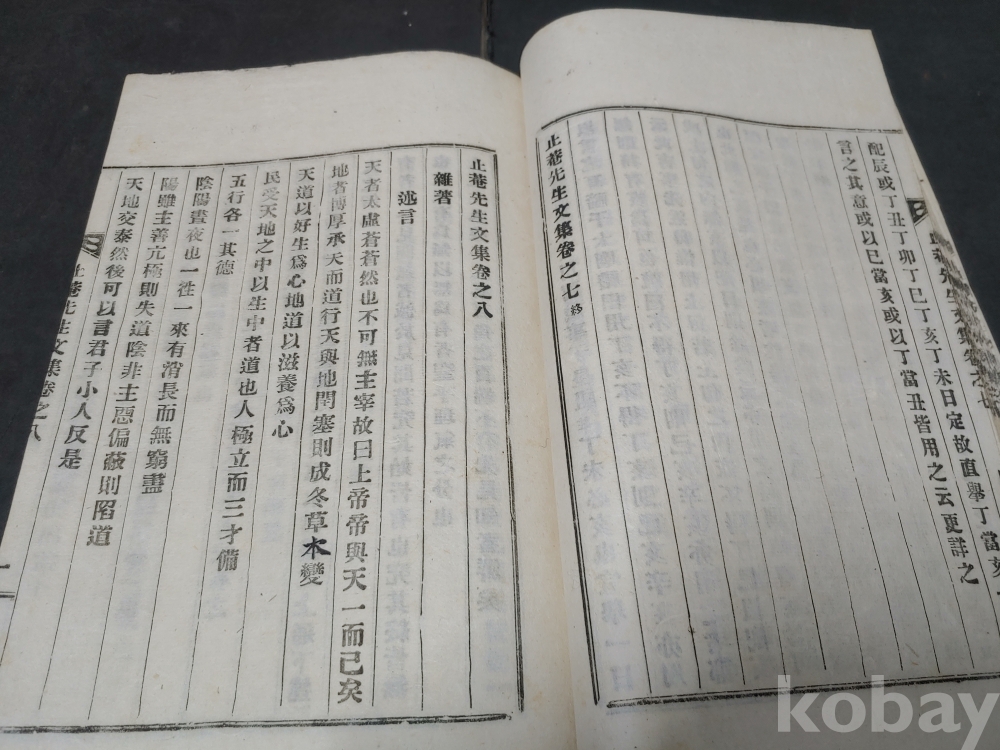 配辰或丁丑丁卯丁巳丁亥丁未日定故直舉丁當亥
言之其意或以巳當亥或以丁當丑皆用之云更詳之
止菴先生文集卷之七 終
止菴先生文集卷之七
止菴先生文集卷之八
雜著
述言
天者太虛蒼蒼然也不可無主宰故曰上帝帝與天一而已矣
地者博厚承天而道行天與地閉塞則成冬草木變
天道以好生爲心地道以滋養爲心
民受天地之中以生中者道也人極立而三才備
五行各一其德
陰陽晝夜也一往一來有消長而無窮盡
陽雖主善亢極則失道陰非主惡偏蔽則陷道
天地交泰然後可以言君子小人反是
止菴先生文集卷之八
一
kobay